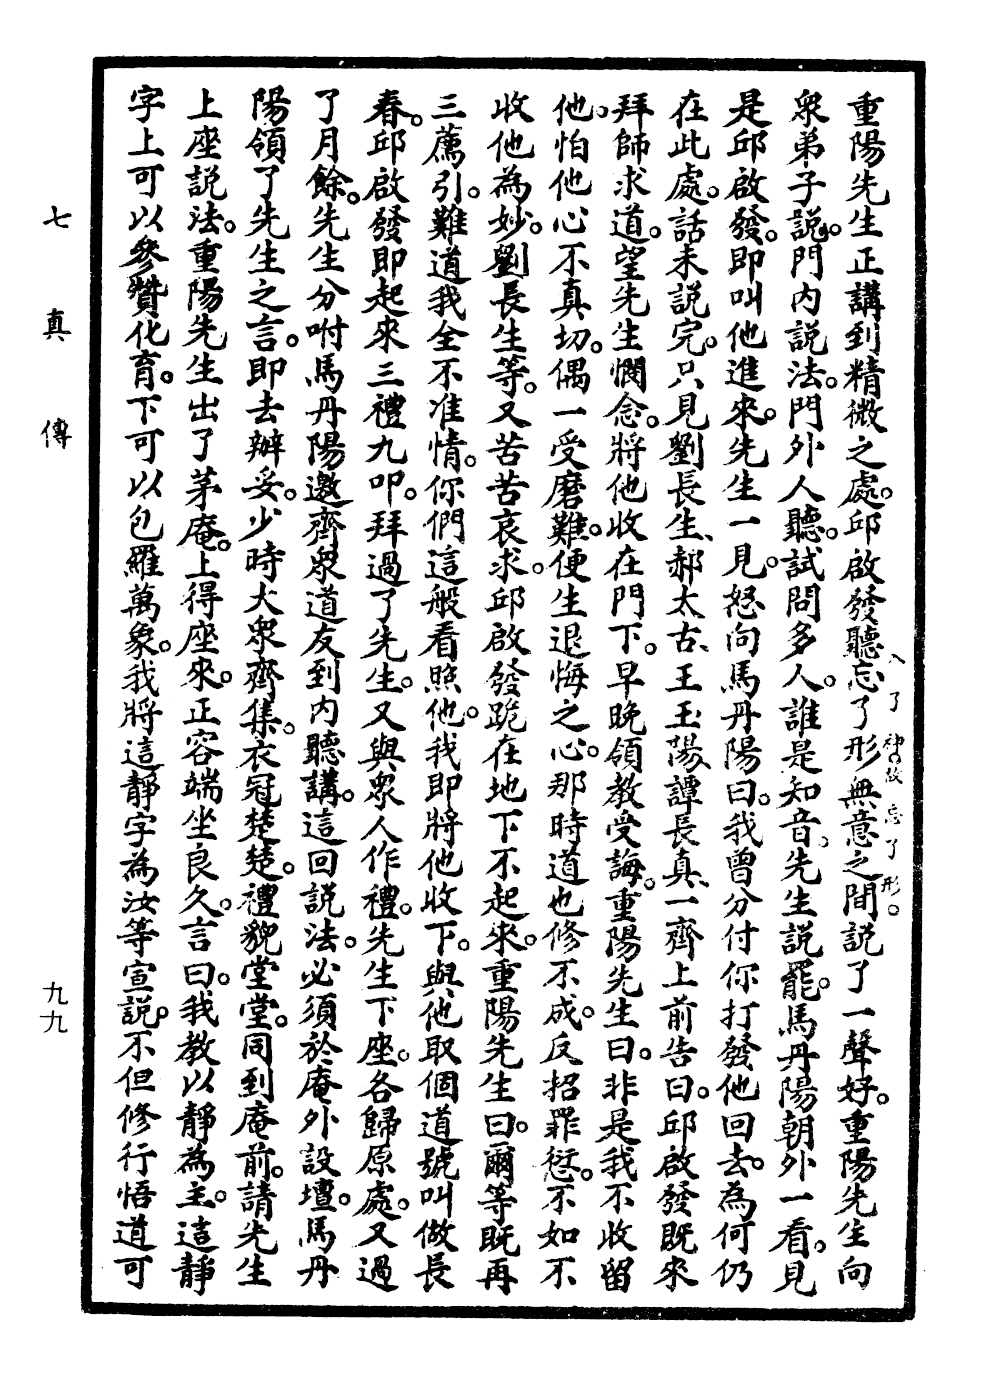 重陽先生正講到精微之處。邱啟發聽忘了形無意之間説了一聲好。重陽先生向
入了神故忘了形。
衆弟子説。門內説法。門外人聽。試問多人。誰是知音。先生説罷。馬丹陽朝外一看。見
是邱啟發。即叫他進來。先生一見。怒向馬丹陽曰。我曾分付你打發他回去。為何仍
在此處。話未説完。只見劉長生、郝太古、王玉陽、譚長真、一齊上前告曰。邱啟發既來
拜師求道。望先生憫念。將他收在門下。早晚領教受誨。重陽先生曰。非是我不收留
他。怕他心不真切。偶一受磨難。便生退悔之心。那時道也修不成。反招罪愆。不如不
收他為妙。劉長生等。又苦苦哀求。邱啟發跪在地下不起來。重陽先生曰。爾等既再
三薦引。難道我全不准情。你們這般看照他。我即將他收下。與他取個道號叫做長
春。邱啟發即起來三禮九叩。拜過了先生。又與衆人作禮。先生下座。各歸原處。又過
了月餘。先生分咐馬丹陽邀齊衆道友到內聽講。這回説法。必須於庵外設壇。馬丹
陽領了先生之言。即去辦妥。少時大衆齊集。衣冠楚楚。禮貌堂堂。同到庵前。請先生
上座説法。重陽先生出了茅庵。上得座來。正容端坐良久。言曰。我教以靜為主。這靜
字上可以參贊化育。下可以包羅萬象。我將這靜字為汝等宣説。不但修行悟道可
七真傳
九九